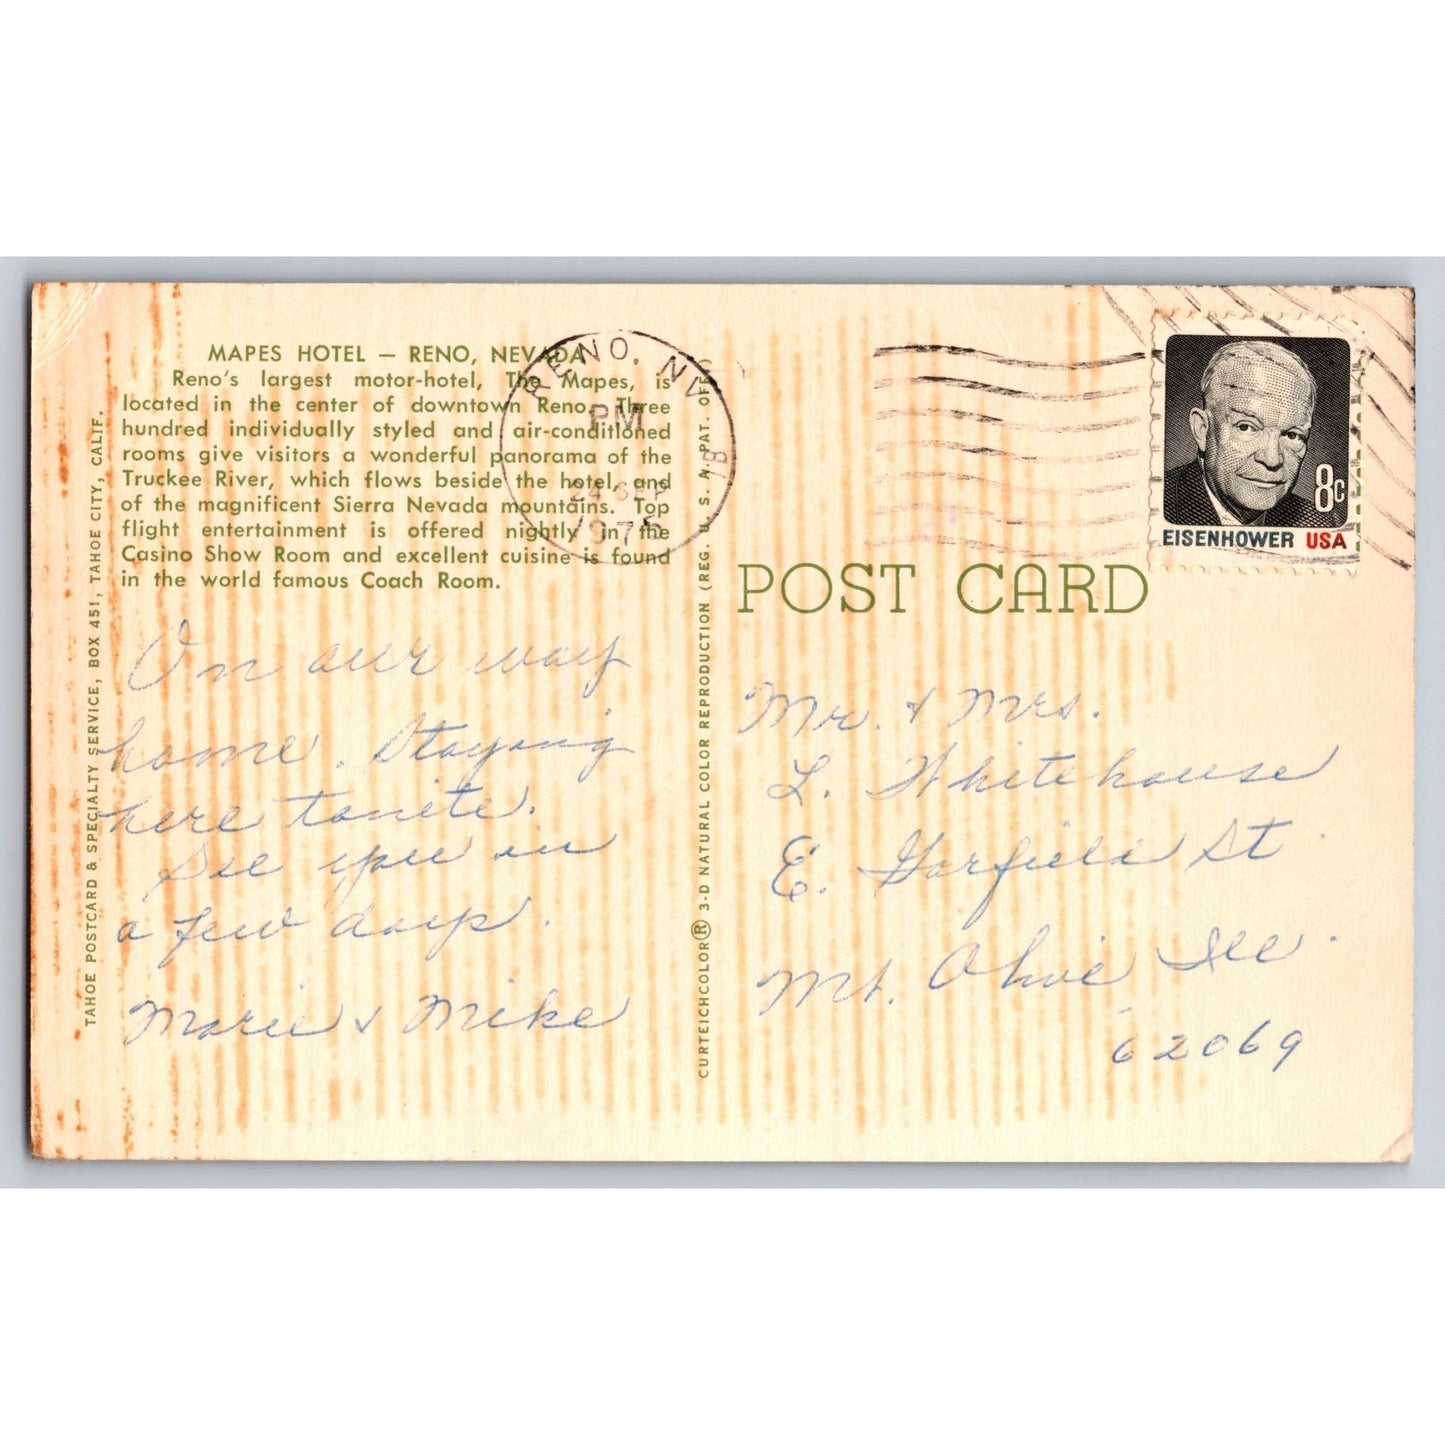 MAPES HOTEL — RENO, NEVADA
Reno's largest motor-hotel, The Mapes, is
located in the center of downtown Reno. Three
hundred individually styled and air-conditioned
rooms give visitors a wonderful panorama of the
Truckee River, which flows beside the hotel, and
of the magnificent Sierra Nevada mountains. Top
flight entertainment is offered nightly in the
Casino Show Room and excellent cuisine is found
in the world famous Coach Room.
TAHOE POSTCARD & SPECIALTY SERVICE, BOX 451, TAHOE CITY, CALIF.
On our way
home. Staying
here tonite.
See you in
a few days.
Marie & Mike
CURTEICHCOLOR® 3-D NATURAL COLOR REPRODUCTION (REG. U. S. A. PAT. OFF.)
RENO, NV
PM
24 SEP
197
8c
EISENHOWER USA
POST CARD
Mr. & Mrs.
L. Whitehouse
E. Garfield St.
Mt. Olive Ill.
62069